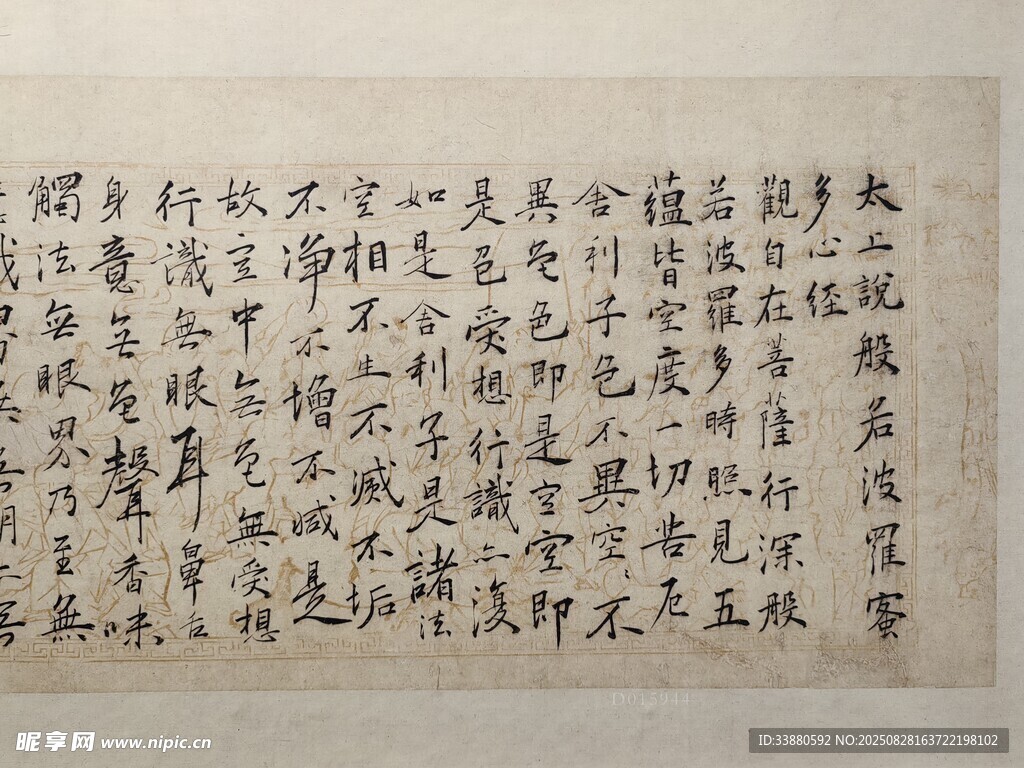 太上說般若波羅蜜
多心経
觀自在菩薩行深般
若波羅多時照見五
蘊皆空度一切苦厄
舍利子色不異空〻不
異色色即是空空即
是色受想行識亦復
如是舍利子是諸法
空相不生不滅不垢
不淨不增不減是
故空中無色無受想
行識無眼耳鼻舌
身意無色聲香味
觸法無眼界乃至無
D015944
昵享网 www.nipic.cn
ID:33880592 NO:20250828163722198102